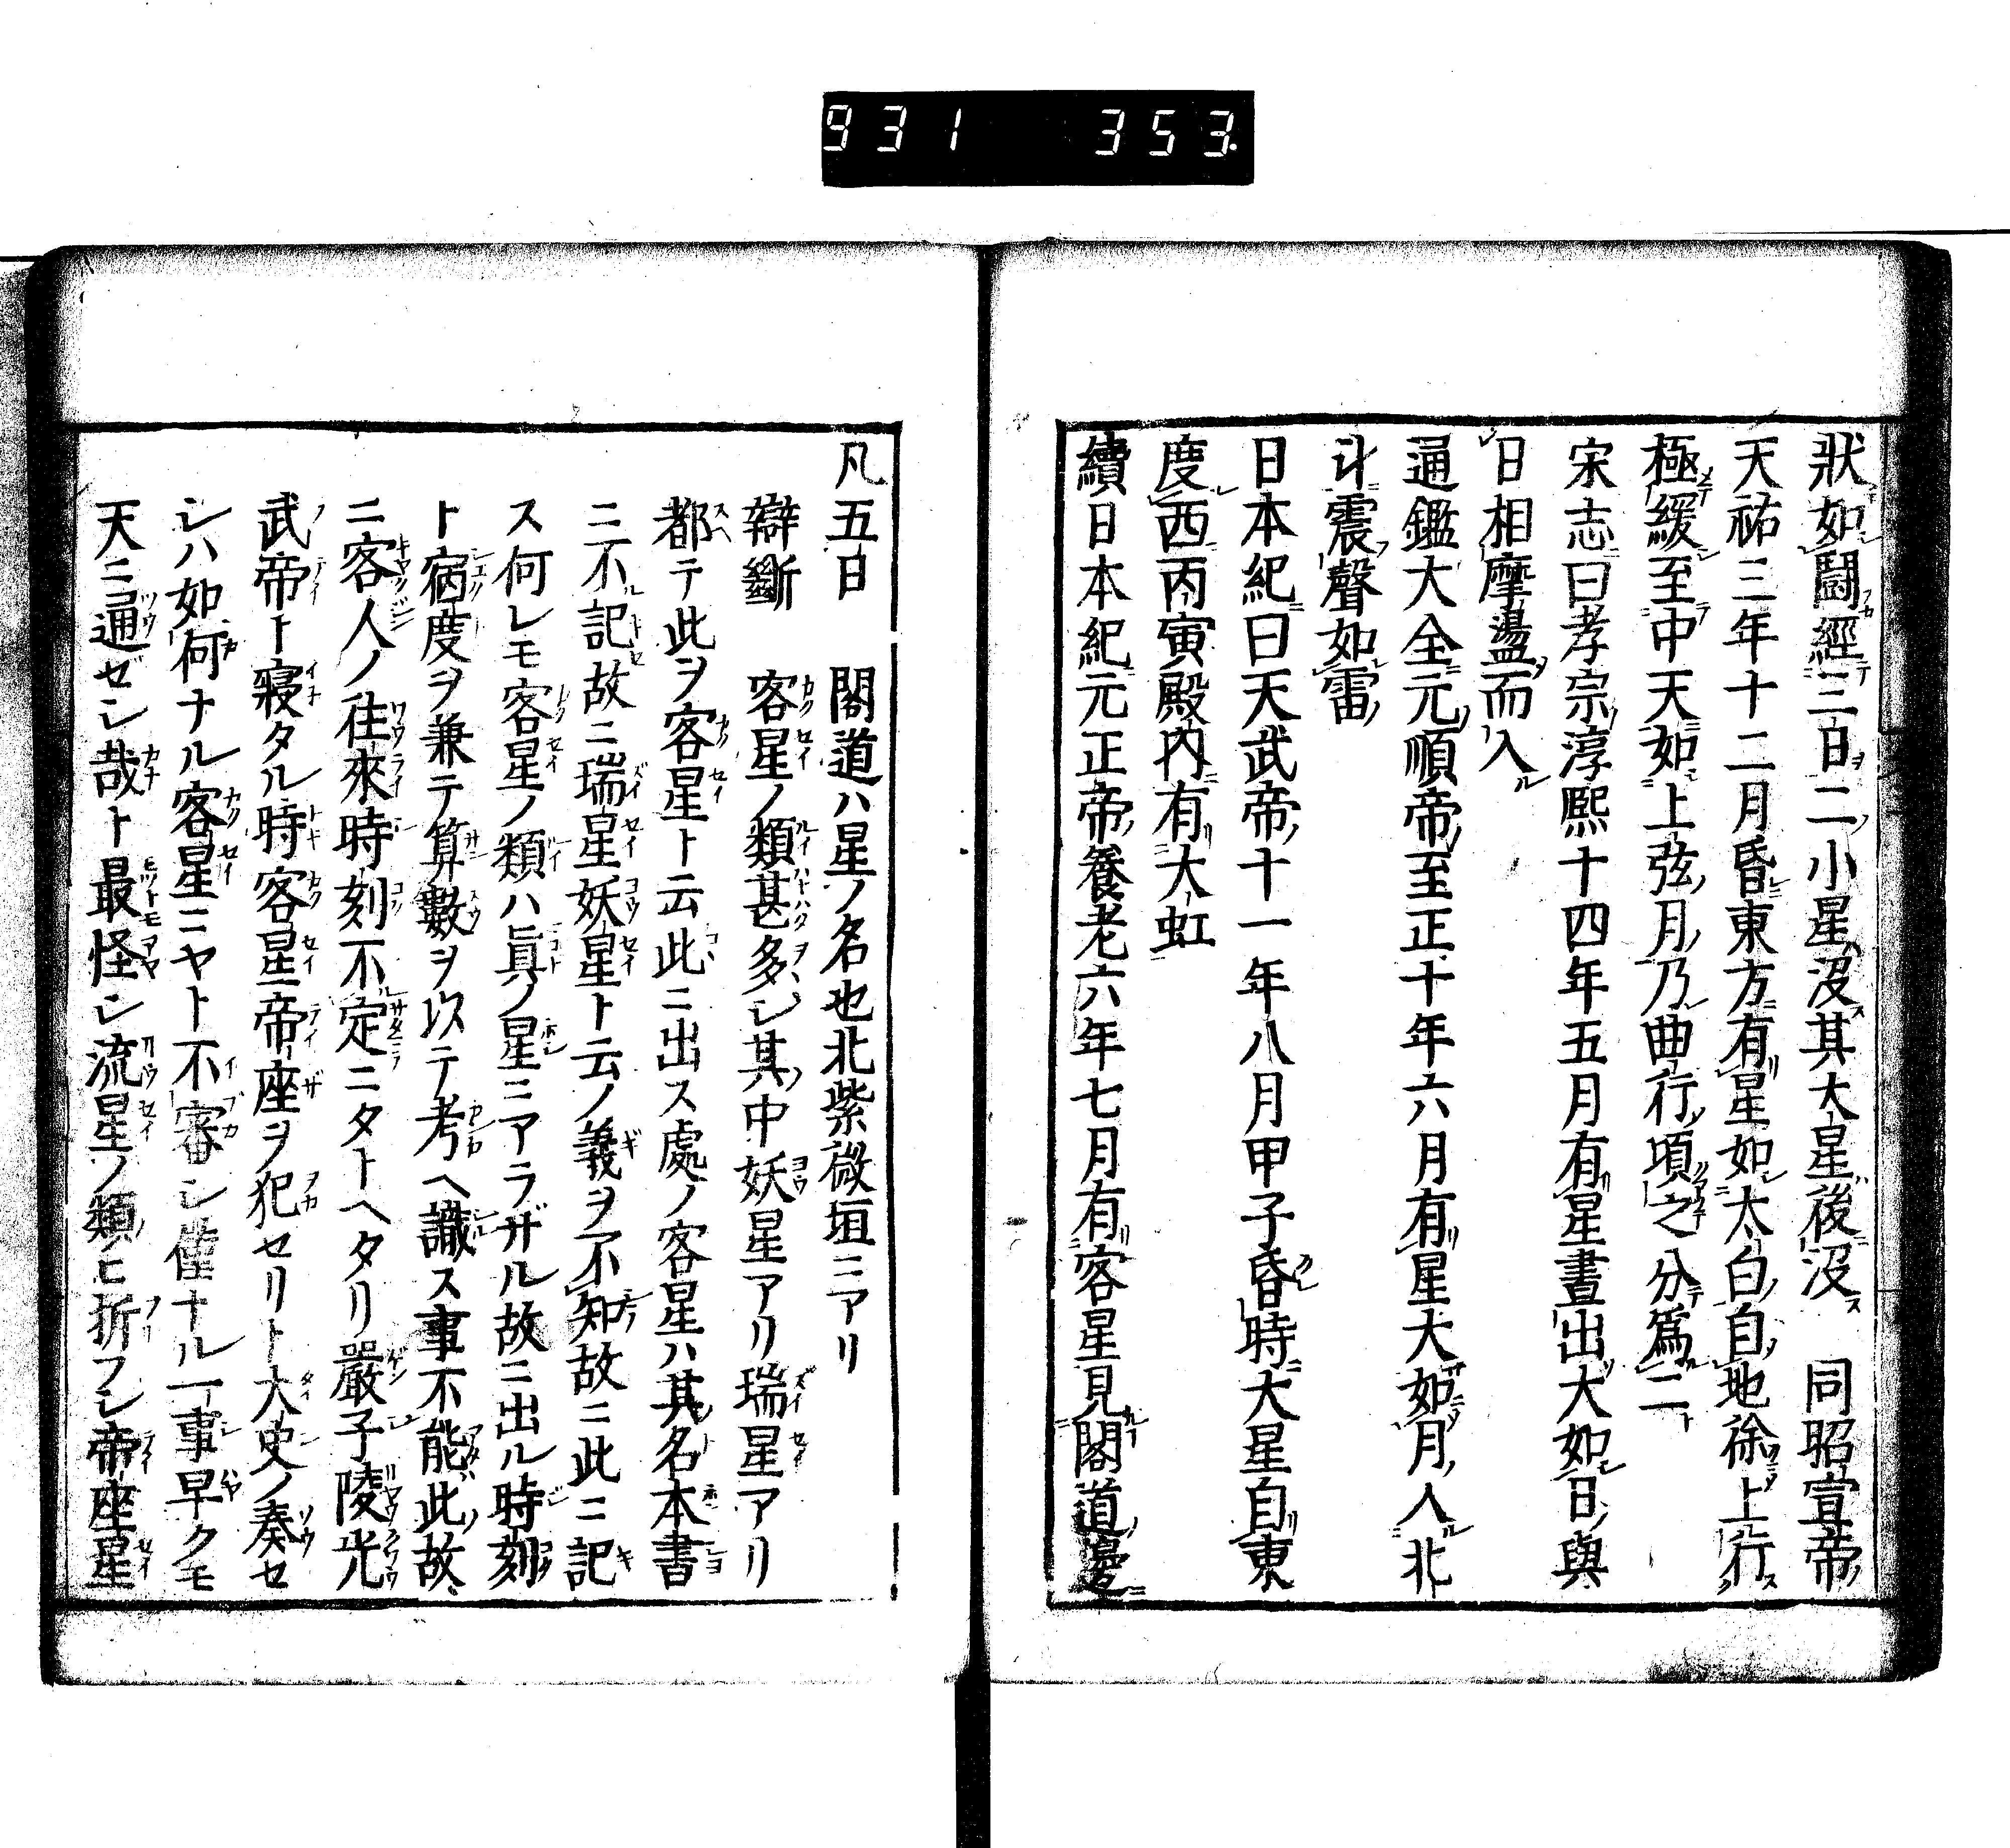 931 353.
狀如闘經三日二小星沒其大星後沒　同昭宣帝
天祐三年十二月昏東方有星如太白自地徐上行
極緩至中天如上弦月乃曲行頃之分爲二
宋志曰孝宗淳熙十四年五月有星晝出大如日與
日相摩盪而入
通鑑大全元順帝至正十年六月有星大如月入北
斗震聲如雷
日本紀曰天武帝十一年八月甲子昏時大星自東
度西丙寅殿內有大虹
續日本紀元正帝養老六年七月有客星見閣道邊
凡五日　閣道ハ星ノ名也北紫微垣ニアリ
辯斷　客星ノ類甚多シ其中妖星アリ瑞星アリ
都テ此ヲ客星ト云此ニ出ス處ノ客星ハ其名本書
ニ不記故ニ瑞星妖星ト云ノ義ヲ不知故ニ此ニ記
ス何レモ客星ノ類ハ眞ノ星ニアラザル故ニ出ル時刻
ト宿度ヲ兼テ算數ヲ以テ考ヘ識ス事不能此故
ニ客人ノ往來時刻不定ニタトヘタリ嚴子陵光
武帝ト寢タル時客星帝座ヲ犯セリト大史ノ奏セ
シハ如何ナル客星ニヤト不審シ僅ナル一事早クモ
天ニ通ゼシ哉ト最怪シ流星ノ類ヒ折フシ帝座星